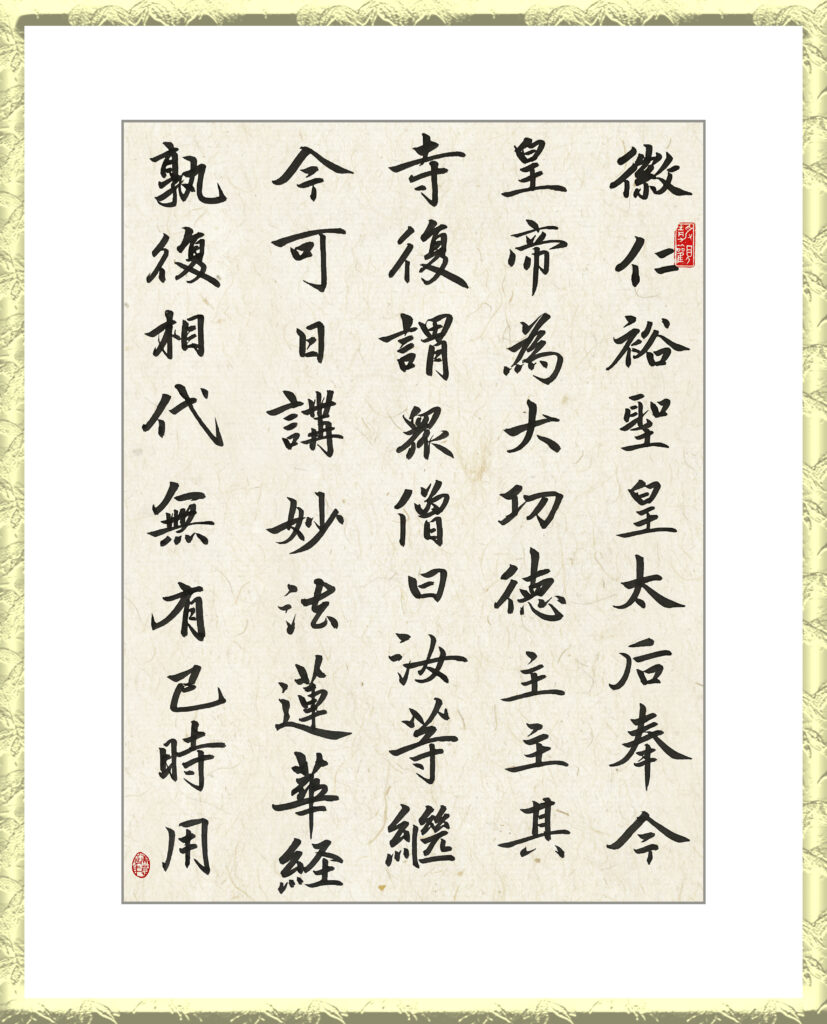 徽仁裕聖皇太后奉今
皇帝為大功德主主其
寺復謂眾僧曰汝等繼
今可日講妙法蓮華経
孰復相代無有已時用